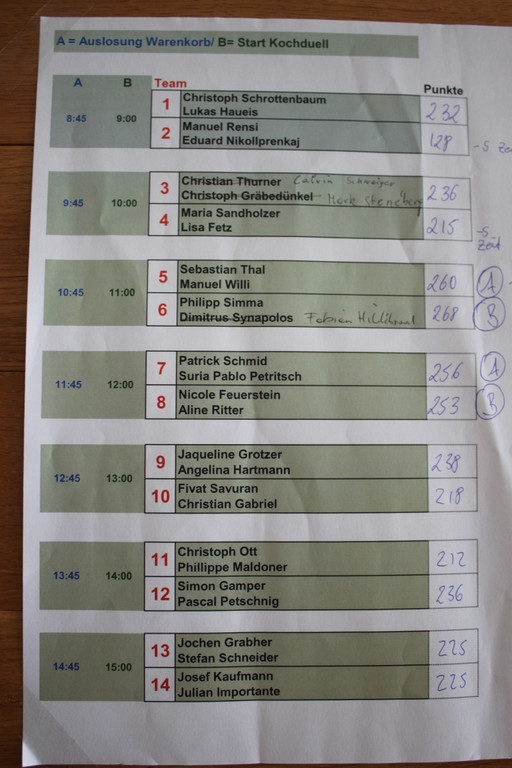 A = Auslosung Warenkorb/ B= Start Kochduell
A B Team Punkte
8:45 9:00
1 Christoph Schrottenbaum 232
Lukas Haueis
2 Manuel Rensi 128
Eduard Nikollprenkaj -5 Zeit
9:45 10:00
3 Christian Thurner 236
Christoph Gräbedünkel Mark
4 Maria Sandholzer 215 -5
Lisa Fetz Zeit
10:45 11:00
5 Sebastian Thal 260 A
Manuel Willi
6 Philipp Simma 268 B
Dimitrus Synapolos Fabian
11:45 12:00
7 Patrick Schmid 256 A
Suria Pablo Petritsch
8 Nicole Feuerstein 253 B
Aline Ritter
12:45 13:00
9 Jaqueline Grotzer 238
Angelina Hartmann
10 Fivat Savuran 218
Christian Gabriel
13:45 14:00
11 Christoph Ott 212
Phillippe Maldoner
12 Simon Gamper 236
Pascal Petschnig
14:45 15:00
13 Jochen Grabher 225
Stefan Schneider
14 Josef Kaufmann 225
Julian Importante